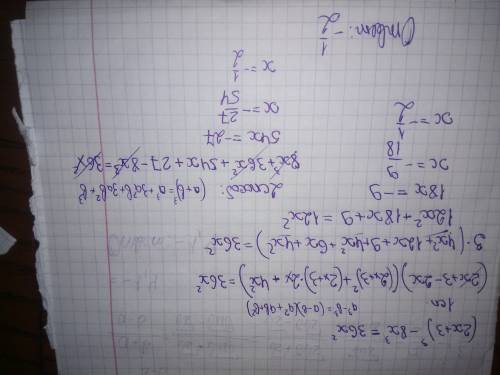 (2x+3)³ - 8x³ = 36x²
1сп a³-b³=(a-b)(a²+ab+b²)
(2x+3-2x)((2x+3)²+(2x+3)·2x+4x²)=36x²
3·(4x²+12x+9+4x²+6x+4x²)=36x²
12x²+18x+9=12x²
18x=-9
x=-9/18
x=-1/2
2 способ: (a+b)³=a³+3a²b+3ab²+b³
8x³+36x²+54x+27-8x³=36x²
54x=-27
x=-27/54
x=-1/2
Ответ: -1/2